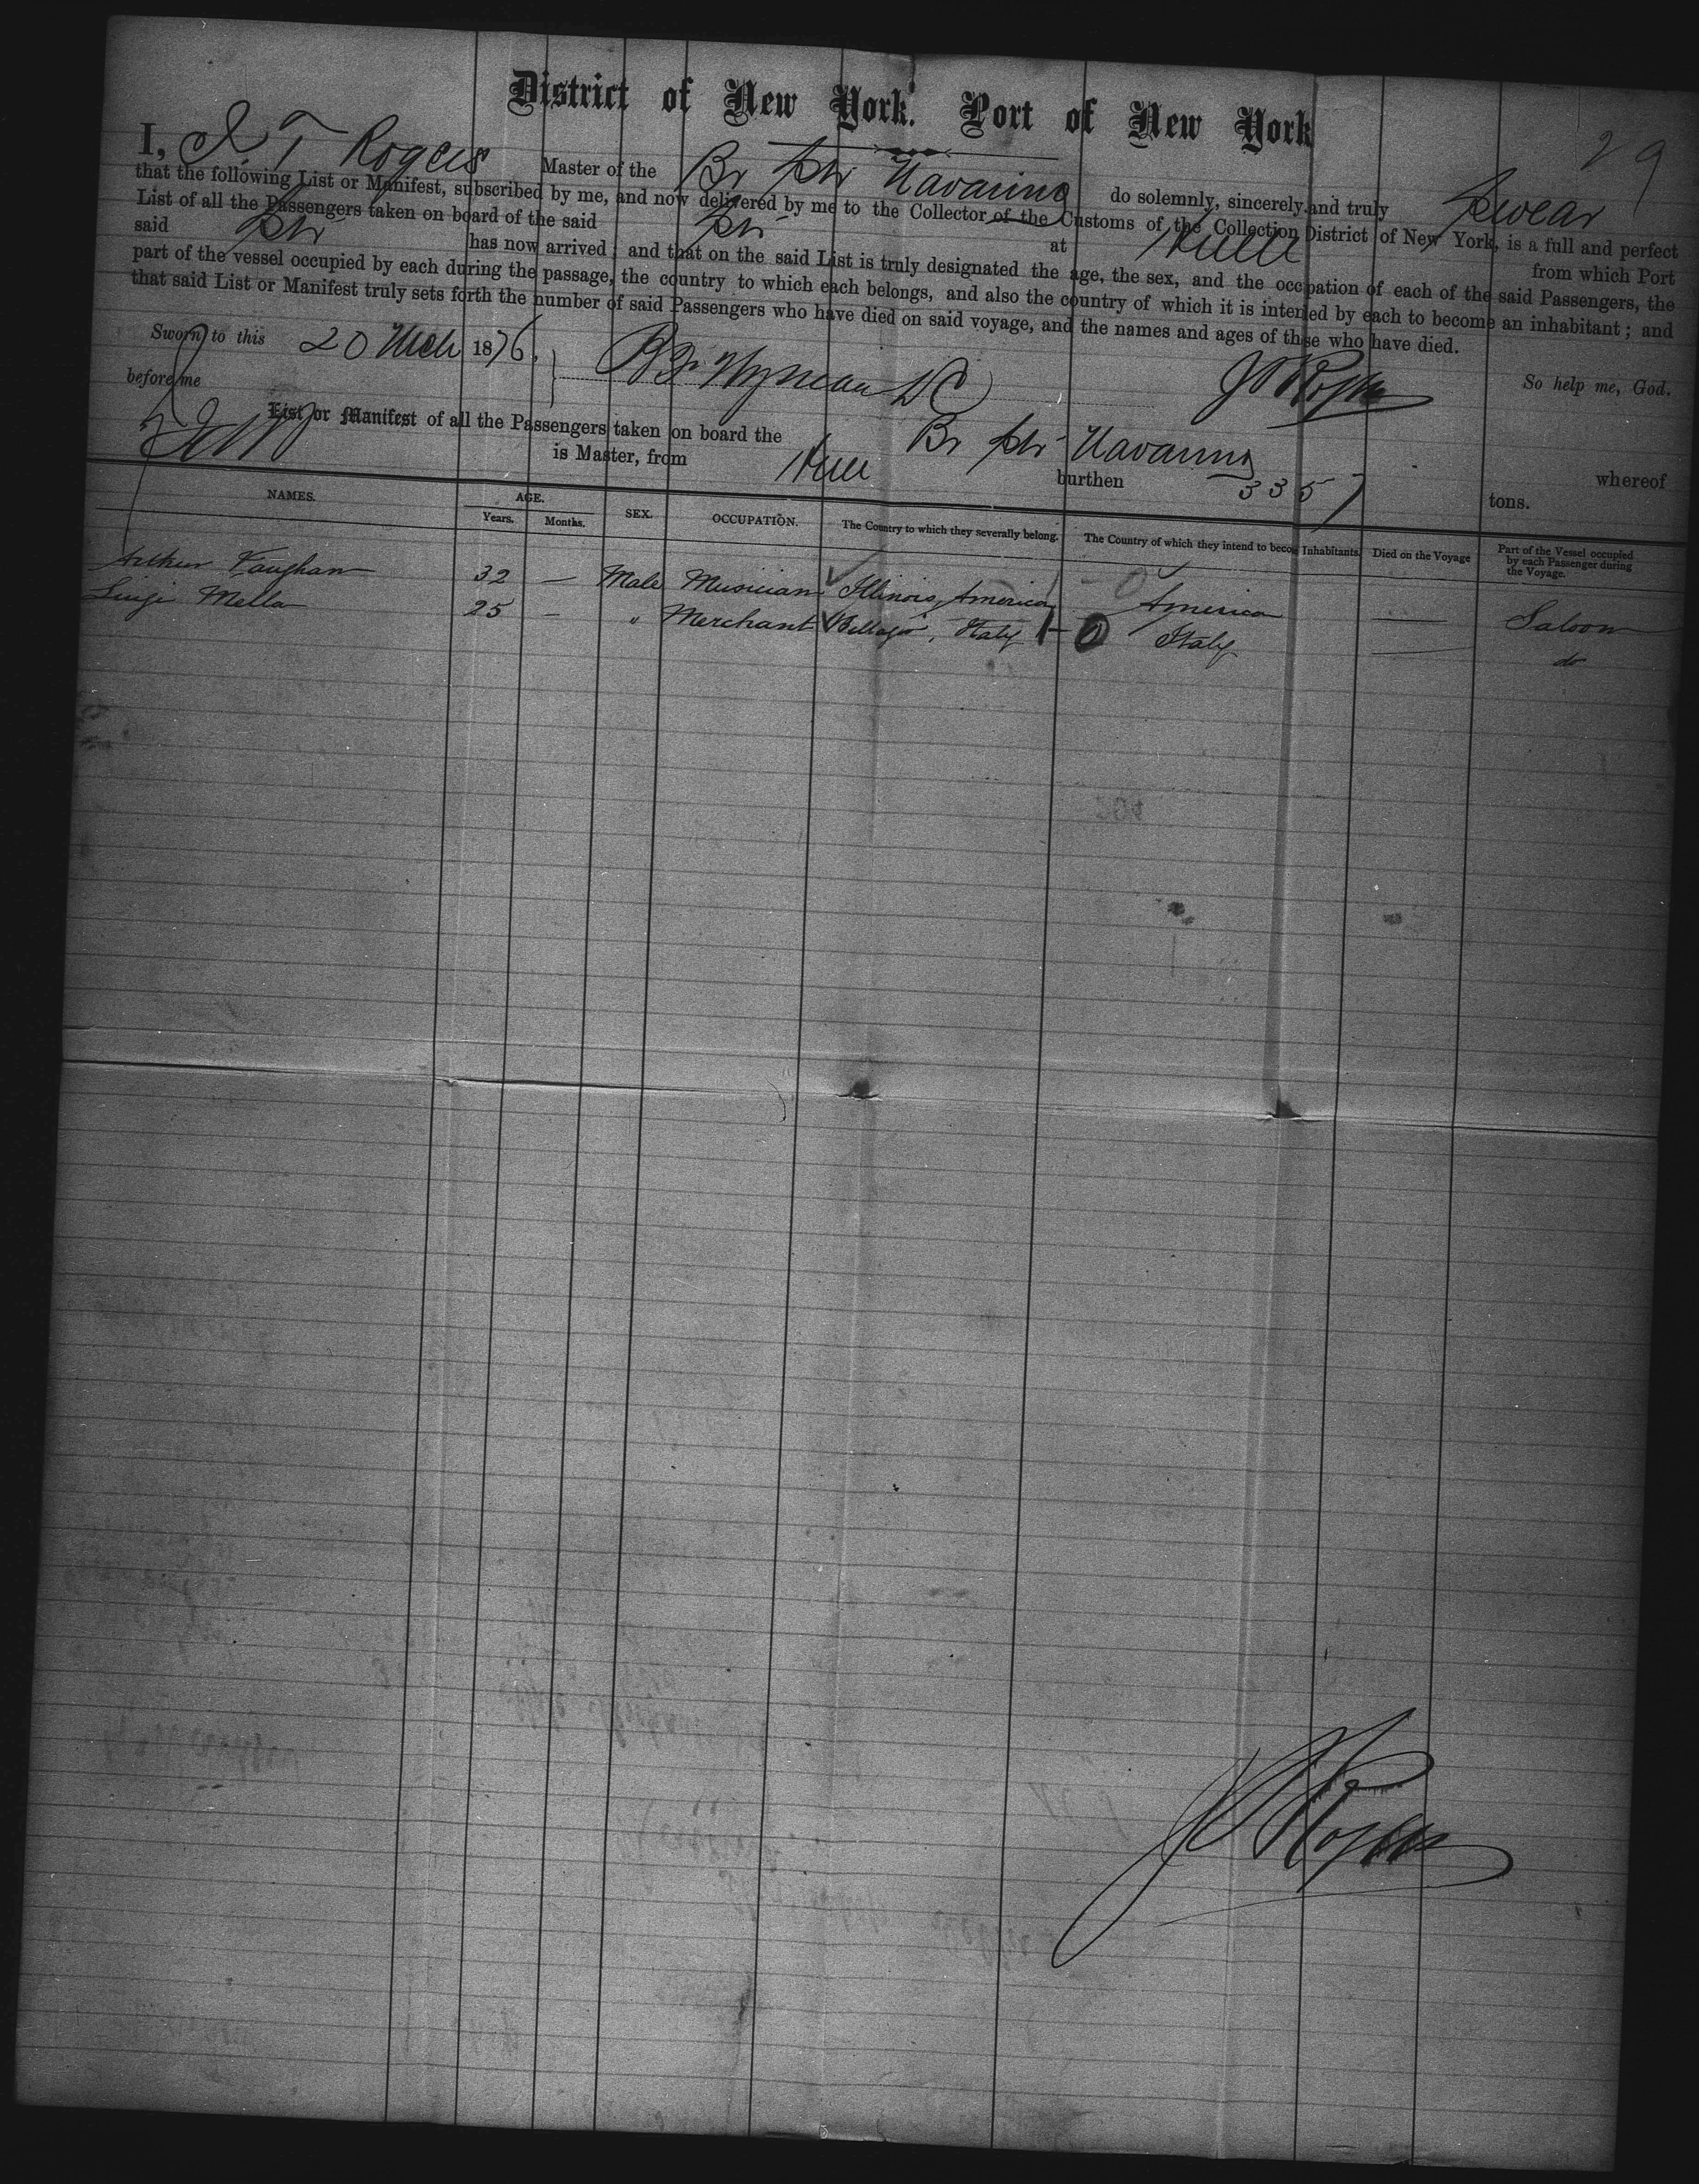 District of New York. Port of New York
29
I, J T Rogers Master of the Br Str Navarino do solemnly, sincerely and truly swear
that the following List or Manifest, subscribed by me, and now delivered by me to the Collector of the Customs of the Collection District of New York, is a full and perfect
List of all the Passengers taken on board of the said Str at Hull from which Port
said Str has now arrived; and that on the said List is truly designated the age, the sex, and the occupation of each of the said Passengers, the
part of the vessel occupied by each during the passage, the country to which each belongs, and also the country of which it is intended by each to become an inhabitant; and
that said List or Manifest truly sets forth the number of said Passengers who have died on said voyage, and the names and ages of those who have died.
Sworn to this 20 Mch 1876, So help me, God.
before me
List or Manifest of all the Passengers taken on board the Br Str Navarino whereof
is Master, from Hull burthen 3357 tons.
NAMES. AGE. SEX. OCCUPATION. The Country to which they severally belong. The Country of which they intend to become Inhabitants. Died on the Voyage Part of the Vessel occupied by each Passenger during the Voyage.
Years. Months.
Arthur Vaughan 32 — Male Musician Illinois, America America — Saloon
Luigi Mella 25 — " Merchant Bellagio, Italy Italy — do